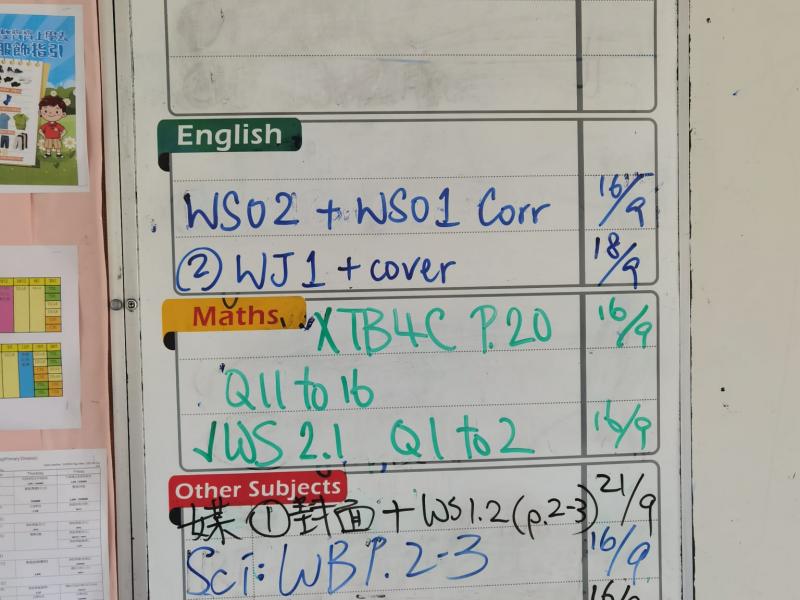 服飾指引
English
WS02 + WS01 Corr 16/9
② WJ1 + cover 18/9
Maths
XTB4C P.20 16/9
Q11 to 16
√WS 2.1 Q1 to 2 16/9
Other Subjects
媒 ①封面 + WS1.2 (p.2-3) 21/9
Sci: WB P. 2-3 16/9
16/9